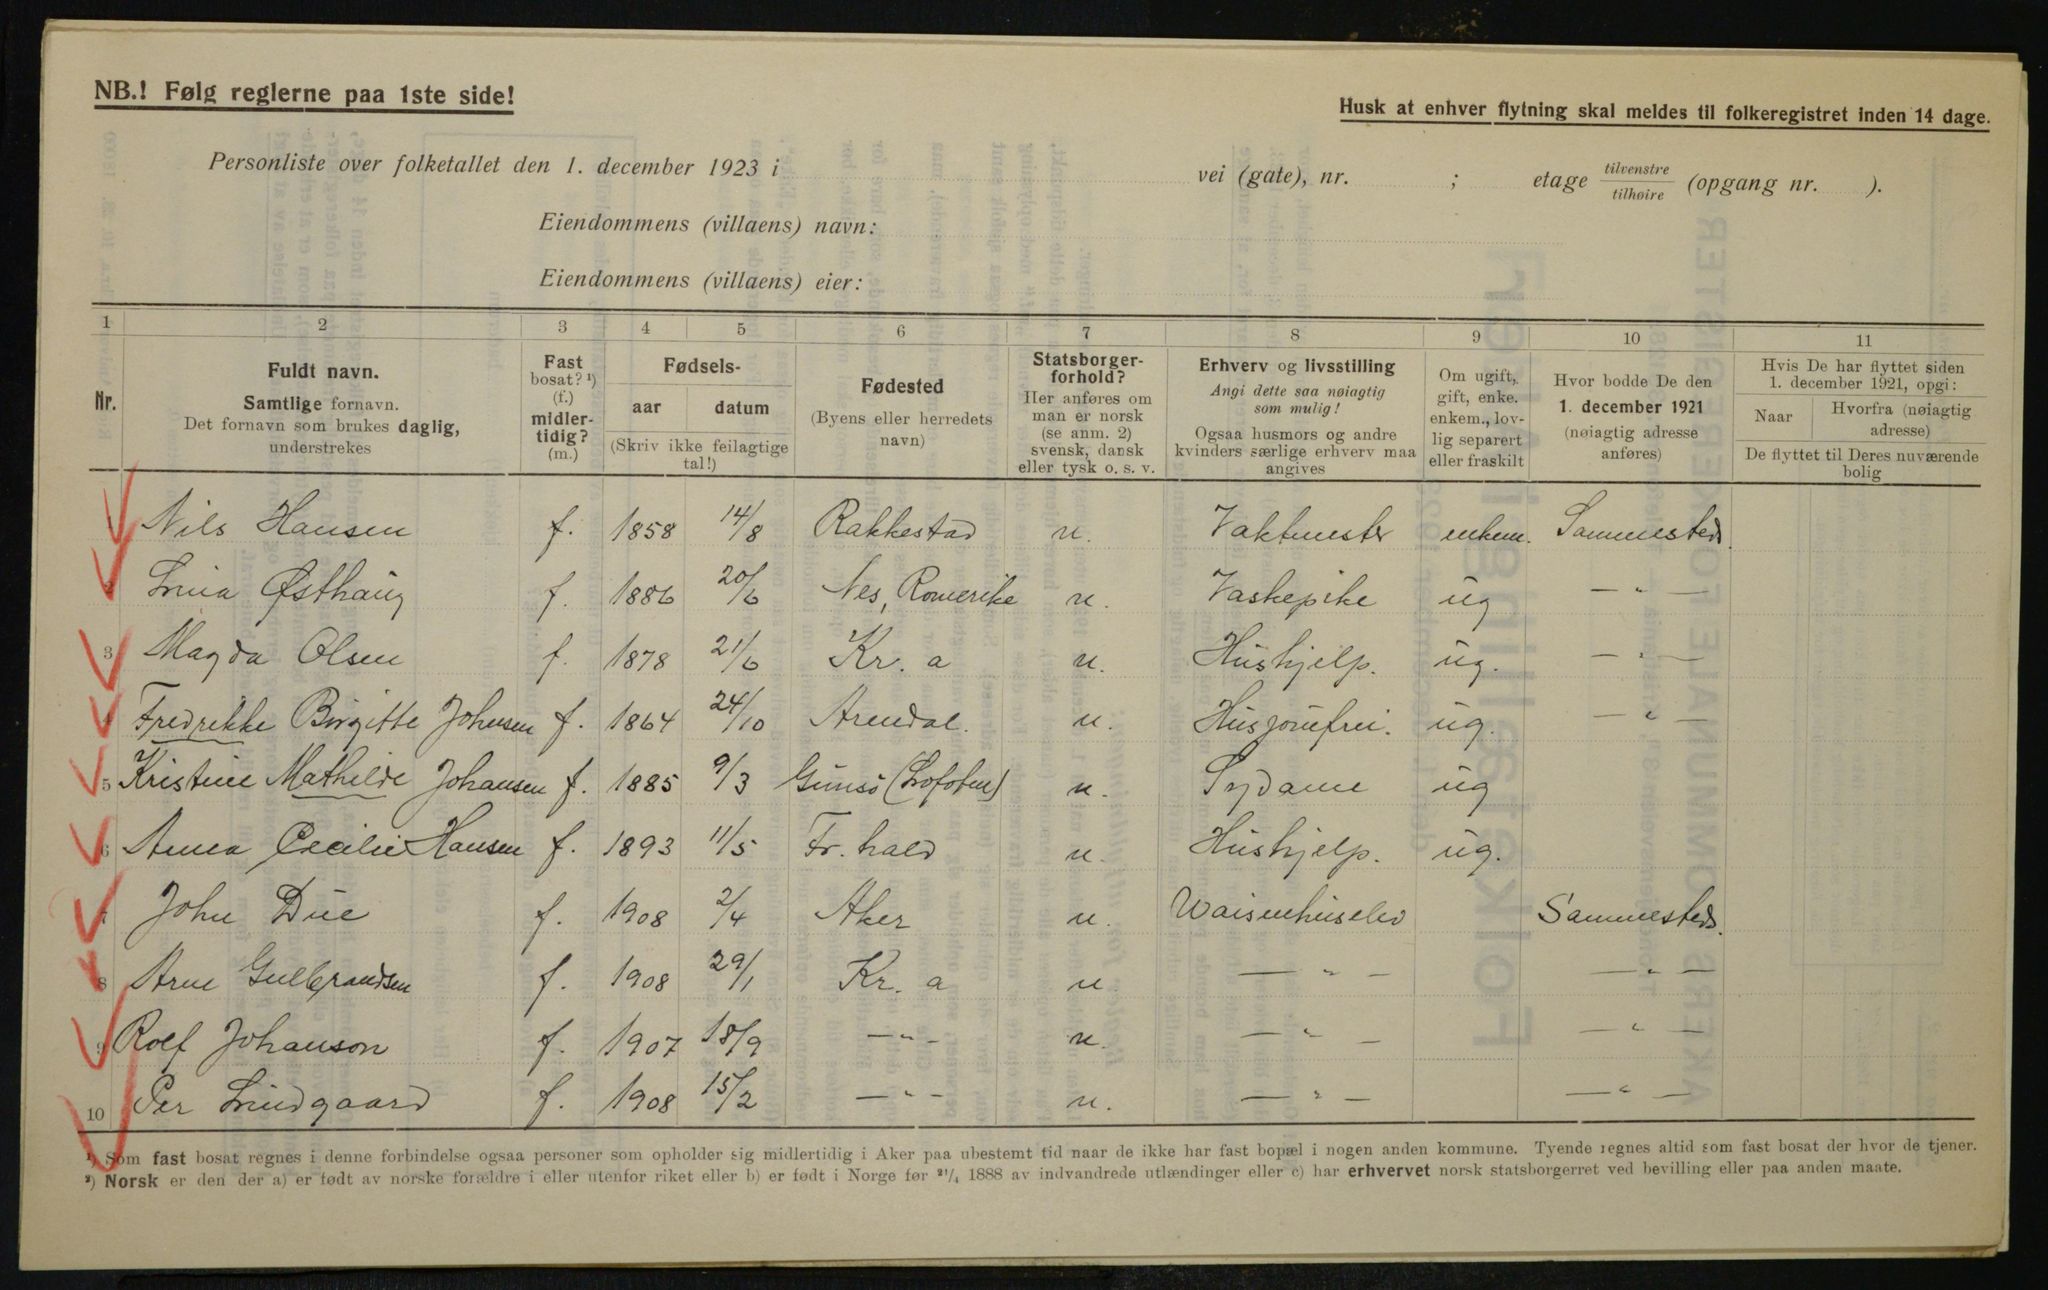 NB.! Følg reglerne paa 1ste side!
Husk at enhver flytning skal meldes til folkeregistret inden 14 dage.
Personliste over folketallet den 1. december 1923 i vei (gate), nr. ; etage tilvenstre tilhøire (opgang nr. ).
Eiendommens (villaens) navn:
Eiendommens (villaens) eier:
1 2 3 4 5 6 7 8 9 10 11
Nr.
Fuldt navn.
Samtlige fornavn.
Det fornavn som brukes daglig,
understrekes
Fast
bosat? ¹)
(f.)
midler-
tidig?
(m.)
Fødsels-
aar datum
(Skriv ikke feilagtige
tal!)
Fødested
(Byens eller herredets
navn)
Statsborger-
forhold?
Her anføres om
man er norsk
(se anm. 2)
svensk, dansk
eller tysk o. s. v.
Erhverv og livsstilling
Angi dette saa nøiagtig
som mulig!
Ogsaa husmors og andre
kvinders særlige erhverv maa
angives
Om ugift,
gift, enke.
enkem., lov-
lig separert
eller fraskilt
Hvor bodde De den
1. december 1921
(nøiagtig adresse
anføres)
Hvis De har flyttet siden
1. december 1921, opgi:
Naar Hvorfra (nøiagtig
adresse)
De flyttet til Deres nuværende
bolig
1 Nils Hansen f. 1858 14/8 Rakkestad n. Vaktmester enkem. Sammesteds.
2 Lina Østhaug f. 1886 20/6 Nes, Romerike n. Vaskepike ug — " —
3 Magda Olsen f. 1878 21/6 Kr. a n. Hushjelp. ug. — " —
4 Fredrikke Birgitte Johnsen f. 1864 24/10 Arendal. n. Husjomfru. ug. — " —
5 Kristine Mathilde Johansen f. 1885 9/3 Gimsö (Lofoten) n. Sydame ug
6 Anna Cecilie Hansen f. 1893 11/5 Fr. hald n. Hushjelp. ug.
7 John Due f. 1908 2/4 Aker n. Waisenhuselev Sammesteds.
8 Arne Gulbrandsen f. 1908 29/1 Kr. a n. — " — — " —
9 Rolf Johanson f. 1907 18/9 — " — n. — " — — " —
10 Per Lindgaard f. 1908 15/2 — " — n. — " — — " —
¹) Som fast bosat regnes i denne forbindelse ogsaa personer som opholder sig midlertidig i Aker paa ubestemt tid naar de ikke har fast bopæl i nogen anden kommune. Tyende regnes altid som fast bosat der hvor de tjener.
²) Norsk er den der a) er født av norske forældre i eller utenfor riket eller b) er født i Norge før ²¹/₄ 1888 av indvandrede utlændinger eller c) har erhvervet norsk statsborgerret ved bevilling eller paa anden maate.